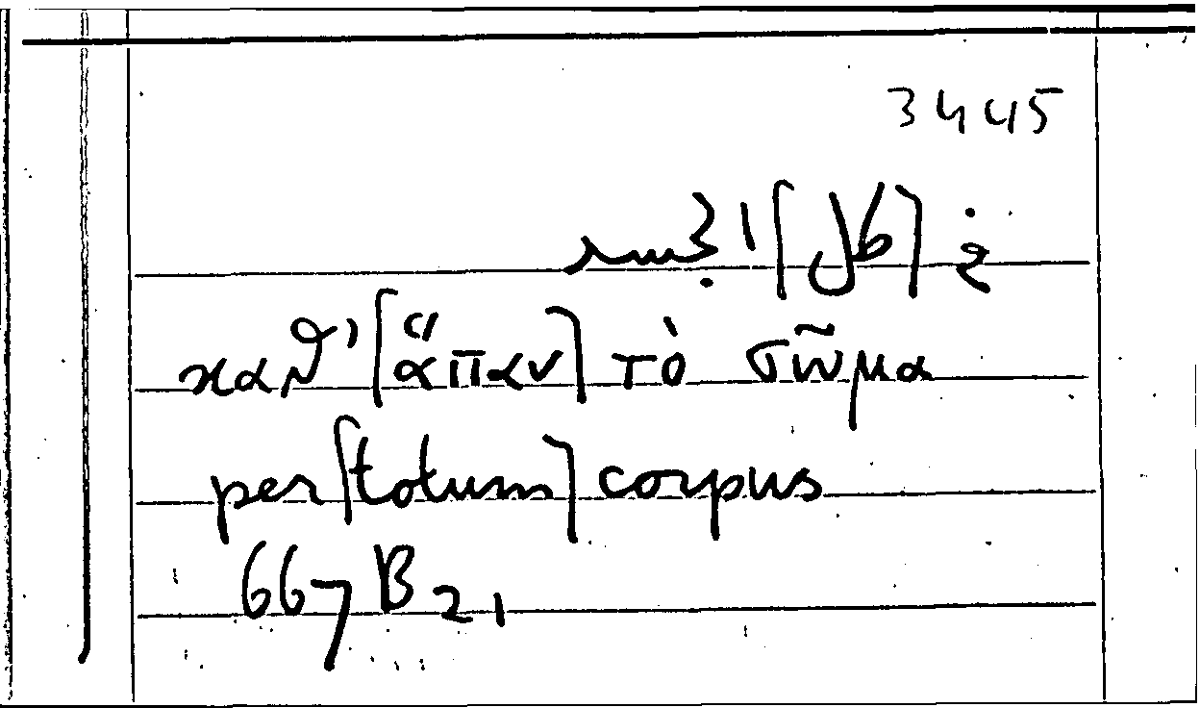 3445
καθ’ [ἅπαν] τὸ σῶμα
per [totum] corpus
667 B 21